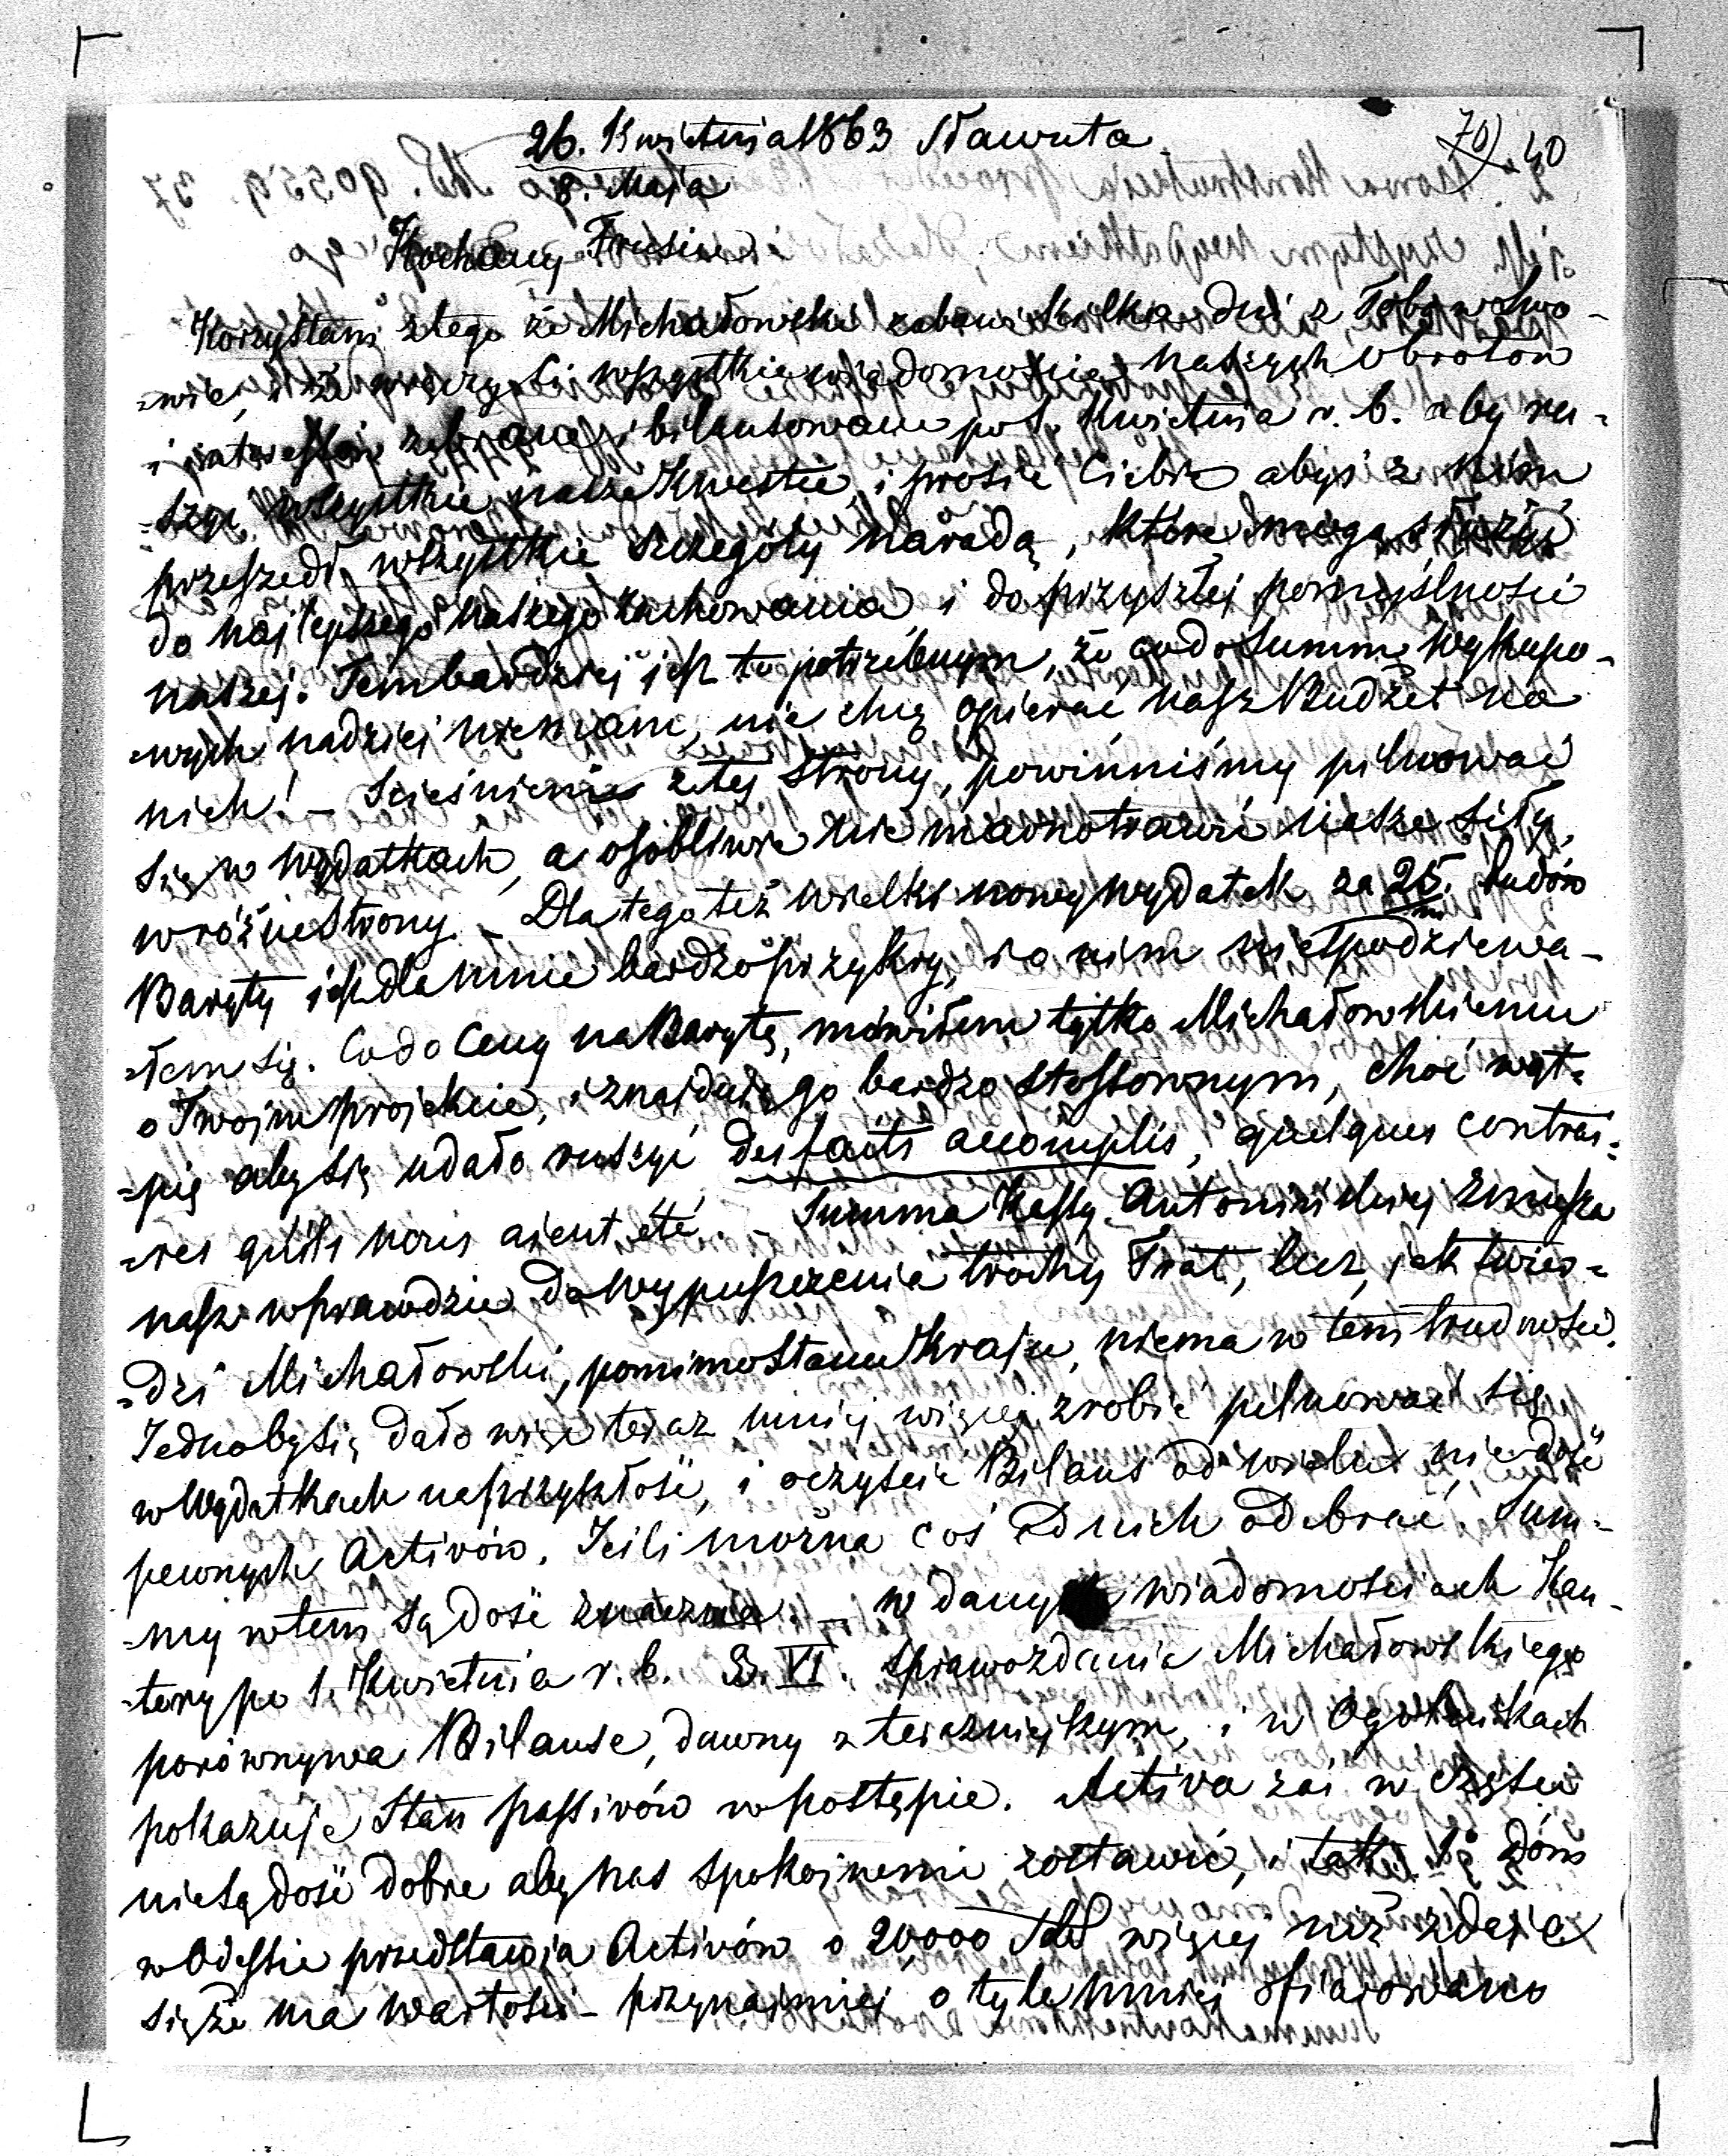 26. Kwietnia 1863 Sławuta
70) 40
8. Maja
Kochany
Korzystam z tego że Michałowski zabawi kilka dni z Tobą w Lwo-
=wie, i że wręczy Ci wszystkie wiadomości naszych obrotów
i zebrane i bilansowane po 1. Kwietnia r. b. aby ru-
=szyć wszystkie nasze Kwestie, i prosić Ciebie abyś z nim
przeszedł wszystkie szczegóły naradą, które mogą służyć
do najlepszego naszego zachowania i do przyszłej pomyślności
naszej. Tembardziej jest to potrzebnym, że co do Summ Wykupo-
=wych nadziei niemam, nie chcę opierać nasz Budżet na
nich! – Ścieśnienie z tej strony, powinniśmy pilnować
się w wydatkach, a osobliwie nie marnotrawić nasze siły
w różne strony. – Dla tego też wielki nowy wydatek za 25. pudów
Baryty jest dla mnie bardzo przykry, i o nim nie spodziewa-
=łem się. Co do Ceny na Barytę, mówiłem tylko Michałowskiemu
o Twoim projekcie, i znajduję go bardzo stossownym, choć wąt=
=pię aby się udało ruszyć des faits accomplis, quelques contrai=
=res qu'ils nous aient été. – Summa Kassy Antonińskiej zmusza
nasz wprawdzie do wypuszczenia trochy Trat, lecz, jak twier=
=dzi Michałowski, pomimo stanu Kraju, niema w tem trudności.
Jedno by się dało więc teraz mniej więcej zrobić pilnować się
w Wydatkach na przyszłość, i oczyścić Bilans od wielu nie dość
pewnych Activów. Jeśli można coś od nich odebrać. Sum-
=my w tem są dość znaczne. – w danych wiadomościach Kan-
=tory po 1. Kwietnia r. b. VI. sprawozdania Michałowskiego
porównywa Bilanse, dawny z teraźniejszym, i w Ogólnikach
pokazuje Stan passivów w postępie. Activa zaś w części
nie są dość dobre aby nas spokojnemi zostawić, i tak 1° dóm
w Odessie przedstawia Activów o 20,000 więcej niż zdaje
się że ma wartości – przynajmniej o tyle mniej ofiarowano